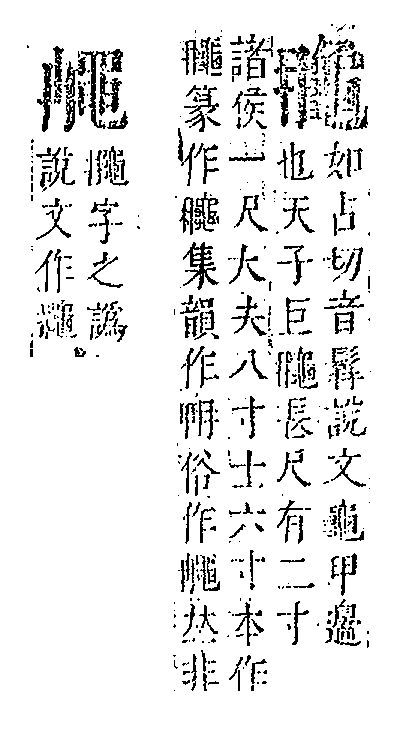 如占切音髥說文龜甲邊
也天子巨長尺有二寸
諸侯一尺大夫八寸士六寸本作
篆作集韻作俗作𠀤非
字之譌
說文作